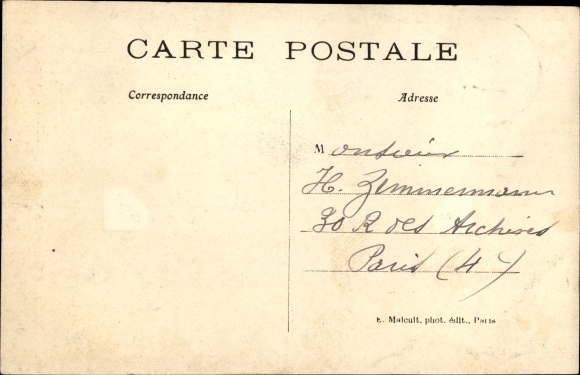 CARTE POSTALE
Correspondance
Adresse
Monsieur
H. Zimmermann
30 R des Archives
Paris (4)
E. Malcuit, phot. édit., Paris